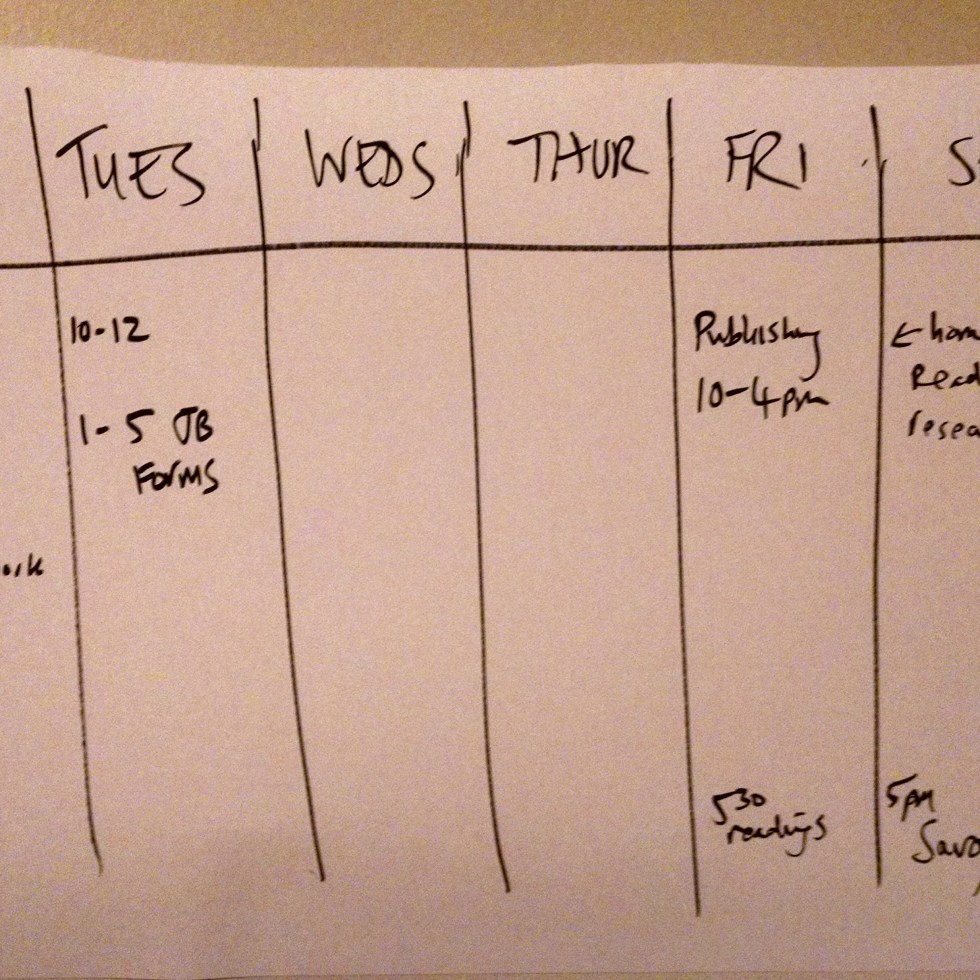 TUES WEDS THUR FRI S
10-12
1-5 JB
FORMS
ork
Publishing
10-4pm
5 30
readings
← hom
Read
resea
5pm
Savo